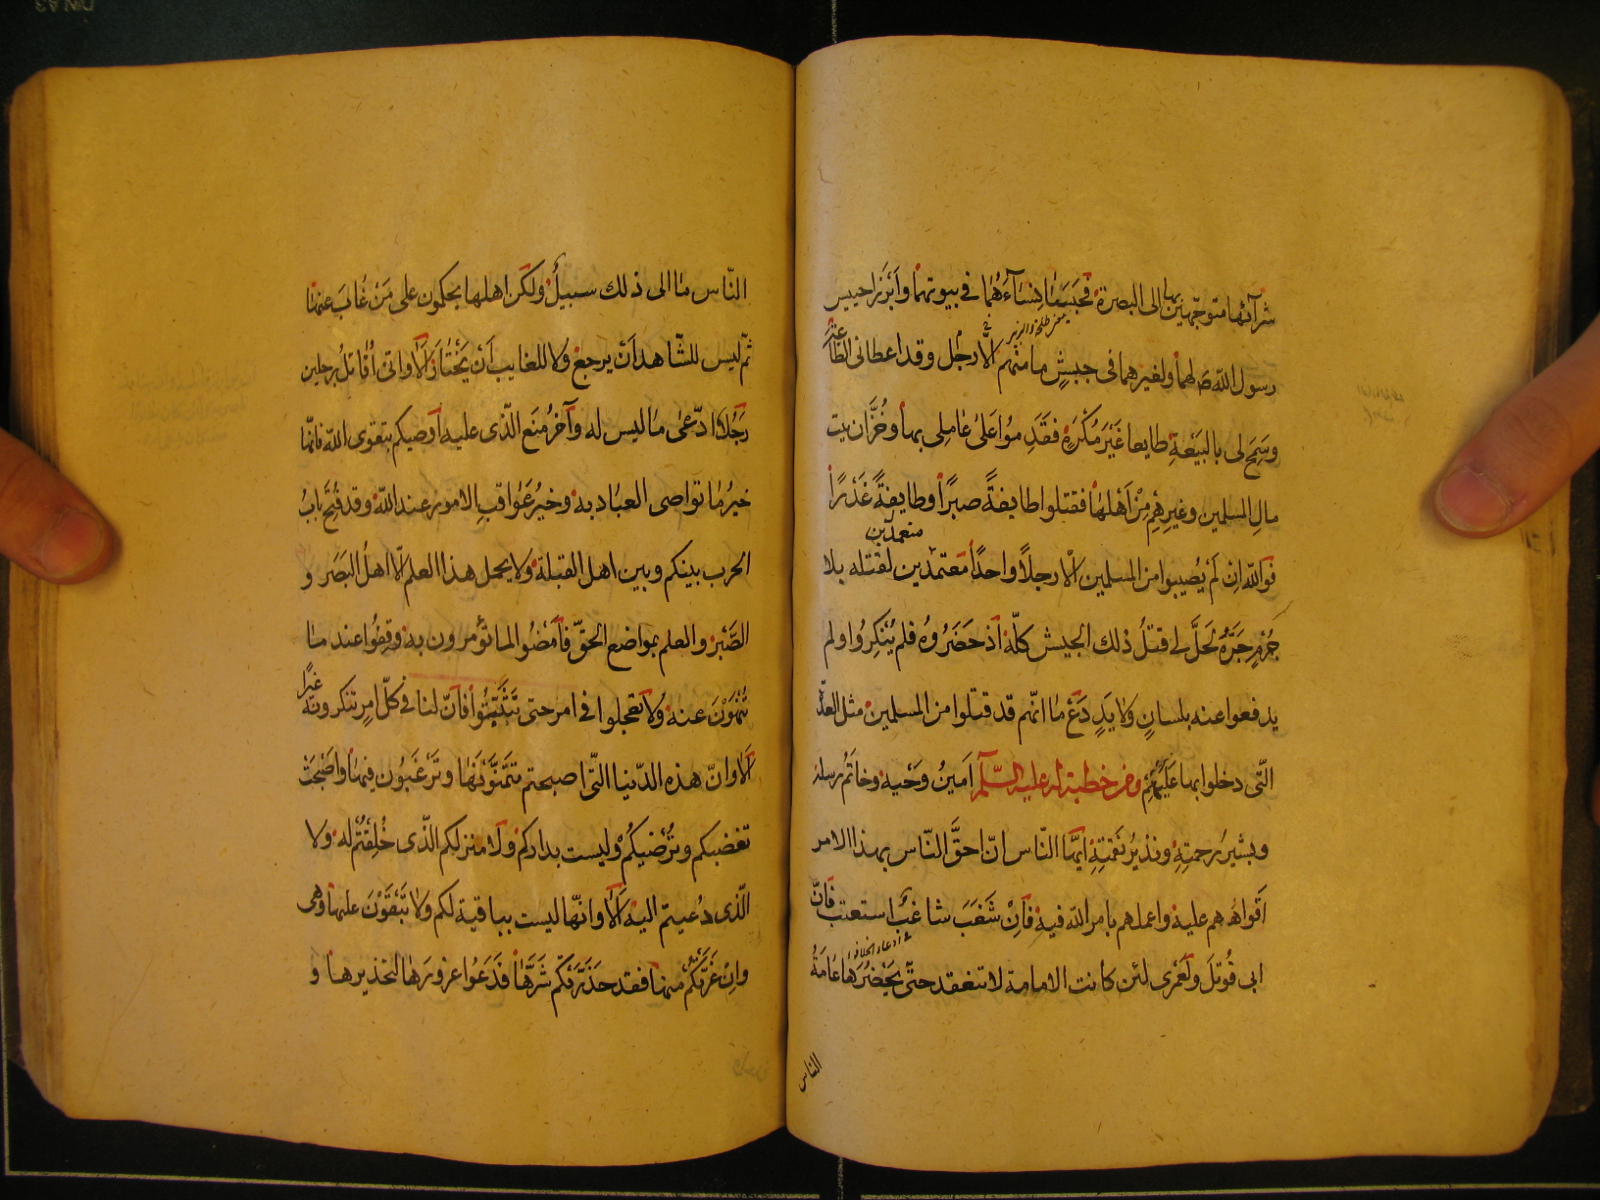 شرآئها متوجّهين بها الى البصرة فحَبَسَا نِسَآءَهُما فى بيوتهما وَاَبْرَزا حبيس
يعنى طلحة والزبير
رسول الله ص لهما ولغيرهما فى جيشٍ ما منهم الّا رجُل وقد اعطانى الطّاعَةَ
وَسَمَحَ لى بالبَيْعَةِ طايعا غَيْرَ مُكْرَهٍ فقَدِموُا عَلىٰ عٰامِلى بها وَخُزّان بيت
مالِ المسلمين وغيرِهِم مِنْ اَهْلهٰا فقتلوا طايفةً صبرًا وطايفةً غَدْرًا
متعمدين
فوَاللهِ اِن لَمْ يُصيبوا من المسلمين اِلّا رجلاً واحداً معتمدين لقتله بلا
جُرْمٍ جَرَّهُ لَحَلَّ لى قتلُ ذلك الجيش كلّه اذ حَضَرُوهُ فلم يُنْكِرُوا ولم
يدفعوا عنه بلسانٍ ولا يَدٍ دَعْ ما انّهم قد قتلوا من المسلمين مثل العدّة
الّتى دخلوا بها عَلَيْهِمْ ومن خطبة له عليه السّلام اَمينُ وَحْيه وخاتَمُ رسله
وبشيرُ رحمتِهِ ونذيرُ نقمتِهِ ايّها النّاس انّ احقَّ النّاس بهذا الامر
اَقواهُم عليه واعملهم بامر الله فيه فاِنْ شَغَبَ شاغبٌ استعتب فاِنْ
ادعاء الخلافة
ابى قُوتلَ ولَعَمْرى لئن كانت الامامة لا تنعقد حتّى يَحْضُرَهٰا عٰامّةُ
الناس
النّاس مٰا الى ذلك سبيلٌ ولكن اهلها يحكمون على مَنْ غٰابَ عنها
ثمّ ليس للشّاهد اَنْ يرجعَ ولا للغايب اَنْ يَخْتٰارَ اَلا وانّى اُقاتلُ رجلين
رَجُلاً ادّعىٰ مٰا ليس له وآخرُ مَنَع الّذى عليه اُوصيكم بتقوى الله فانّها
خيرُ مٰا تواصى العبٰاد به وخيرُ عَوٰاقبِ الامور عند الله وقد فُتِحَ بابُ
الحرب بينكم وبين اهل القبلة ولا يحمل هذا العلم الّا اهلُ البَصَر و
الصَّبْرِ والعلم بمواضع الحقّ فَامْضُوا لما تؤمرون به وقِفُوا عند مٰا
تُنْهَوْنَ عنه ولا تعجلوا فى امرٍ حتى تَتَبَيَّنُوا فانّ لنا فى كلّ امرٍ تنكرونَه غِيَرًا
اَلا وانّ هذه الدّنيا الّتى اصبحتم تتمَنَّوْنَهٰا وتَرْغَبُون فيها واصْبَحَتْ
تغضبكم وتُرْضيكُم ليست بداركم ولا منزلكم الّذى خُلِقْتُم له ولا
الّذى دُعيتم اليه اَلا وانّها ليست بباقية لكم ولا تَبْقَوْنَ عليها وهى
وان غَرَّتكُمْ منها فقد حَذَّرَتكُم شَرَّها فَدَعُوا غرورَها لتحذيرها و